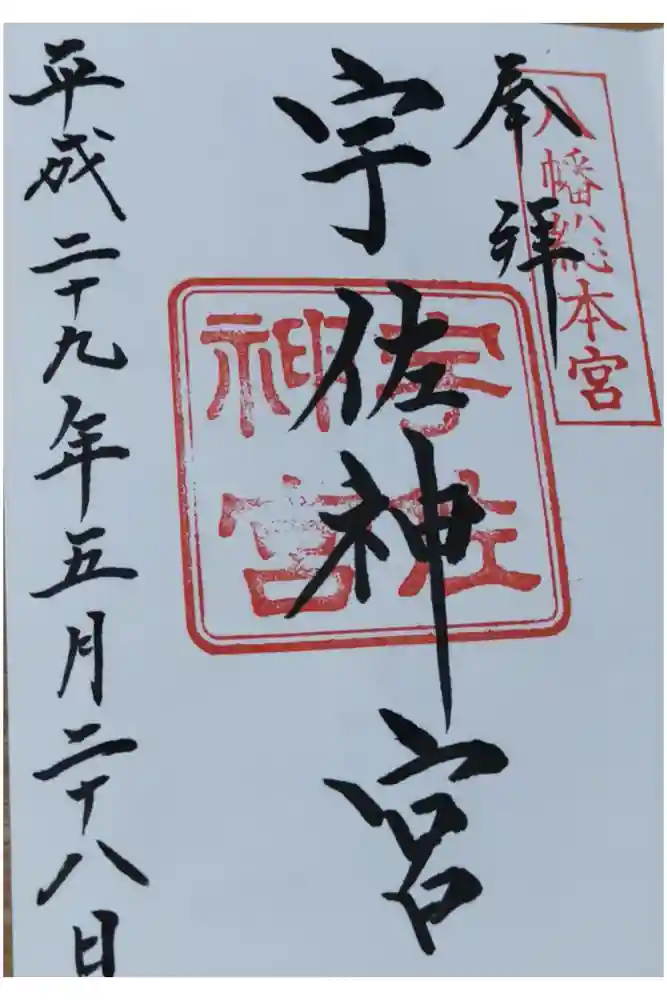 八幡総本宮
奉拝
宇佐神宮
宇佐
神宮
平成二十九年五月二十八日